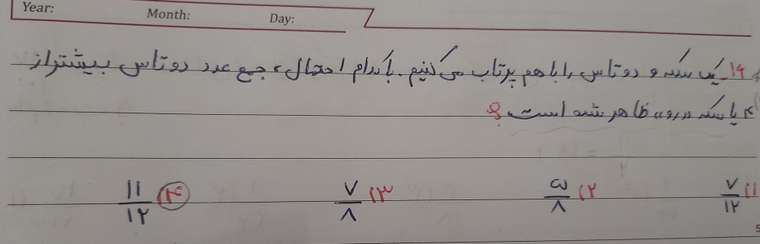 Year:
Month:
Day:
۱۶_ یک سکه و دو تاس را با هم پرتاب می کنیم. با کدام احتمال، جمع عدد دو تاس بیشتر از
۴ یا سکه «رو» ظاهر شده است؟
۱) ۷/۱۲ ۲) ۵/۸ ۳) ۷/۸ ۴) ۱۱/۱۲